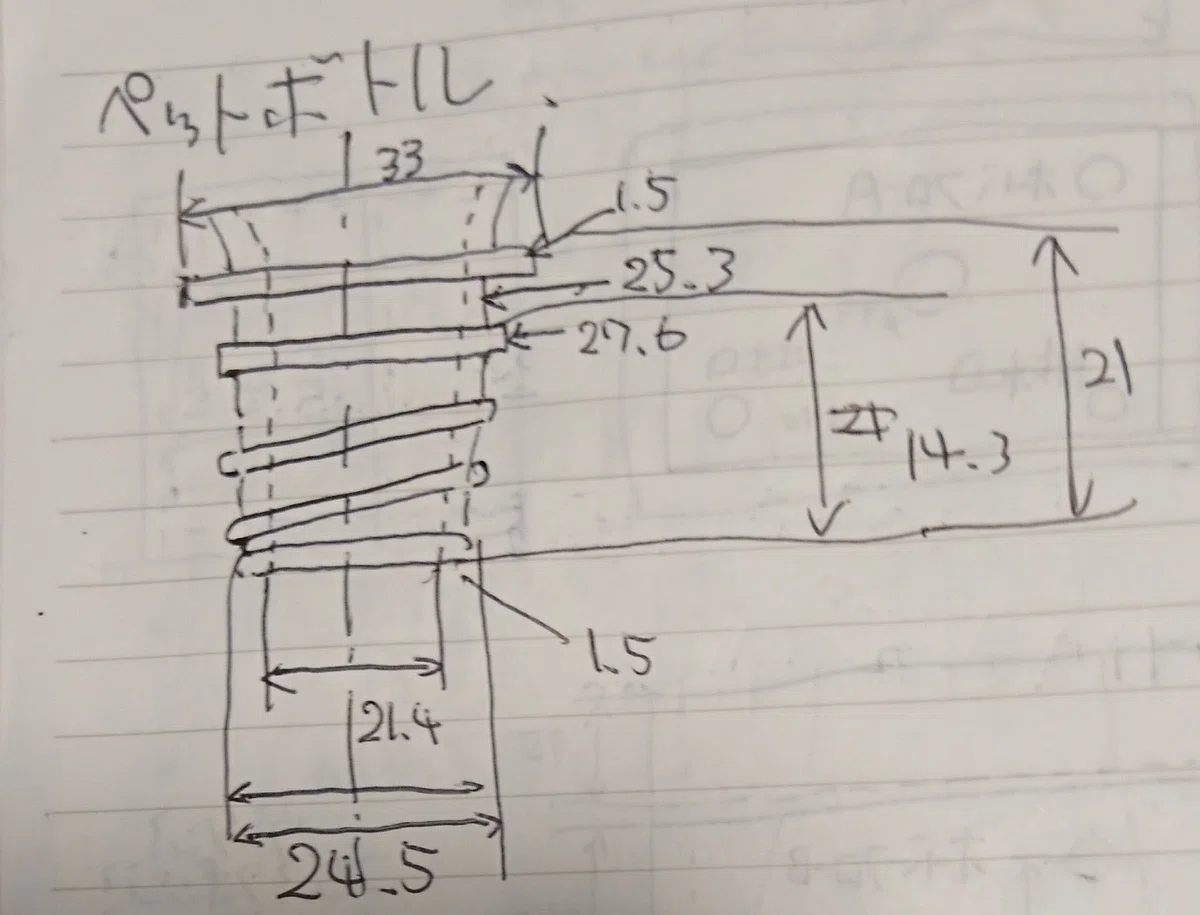 ペットボトル
33
1.5
25.3
27.6
21
14.3
1.5
21.4
24.5